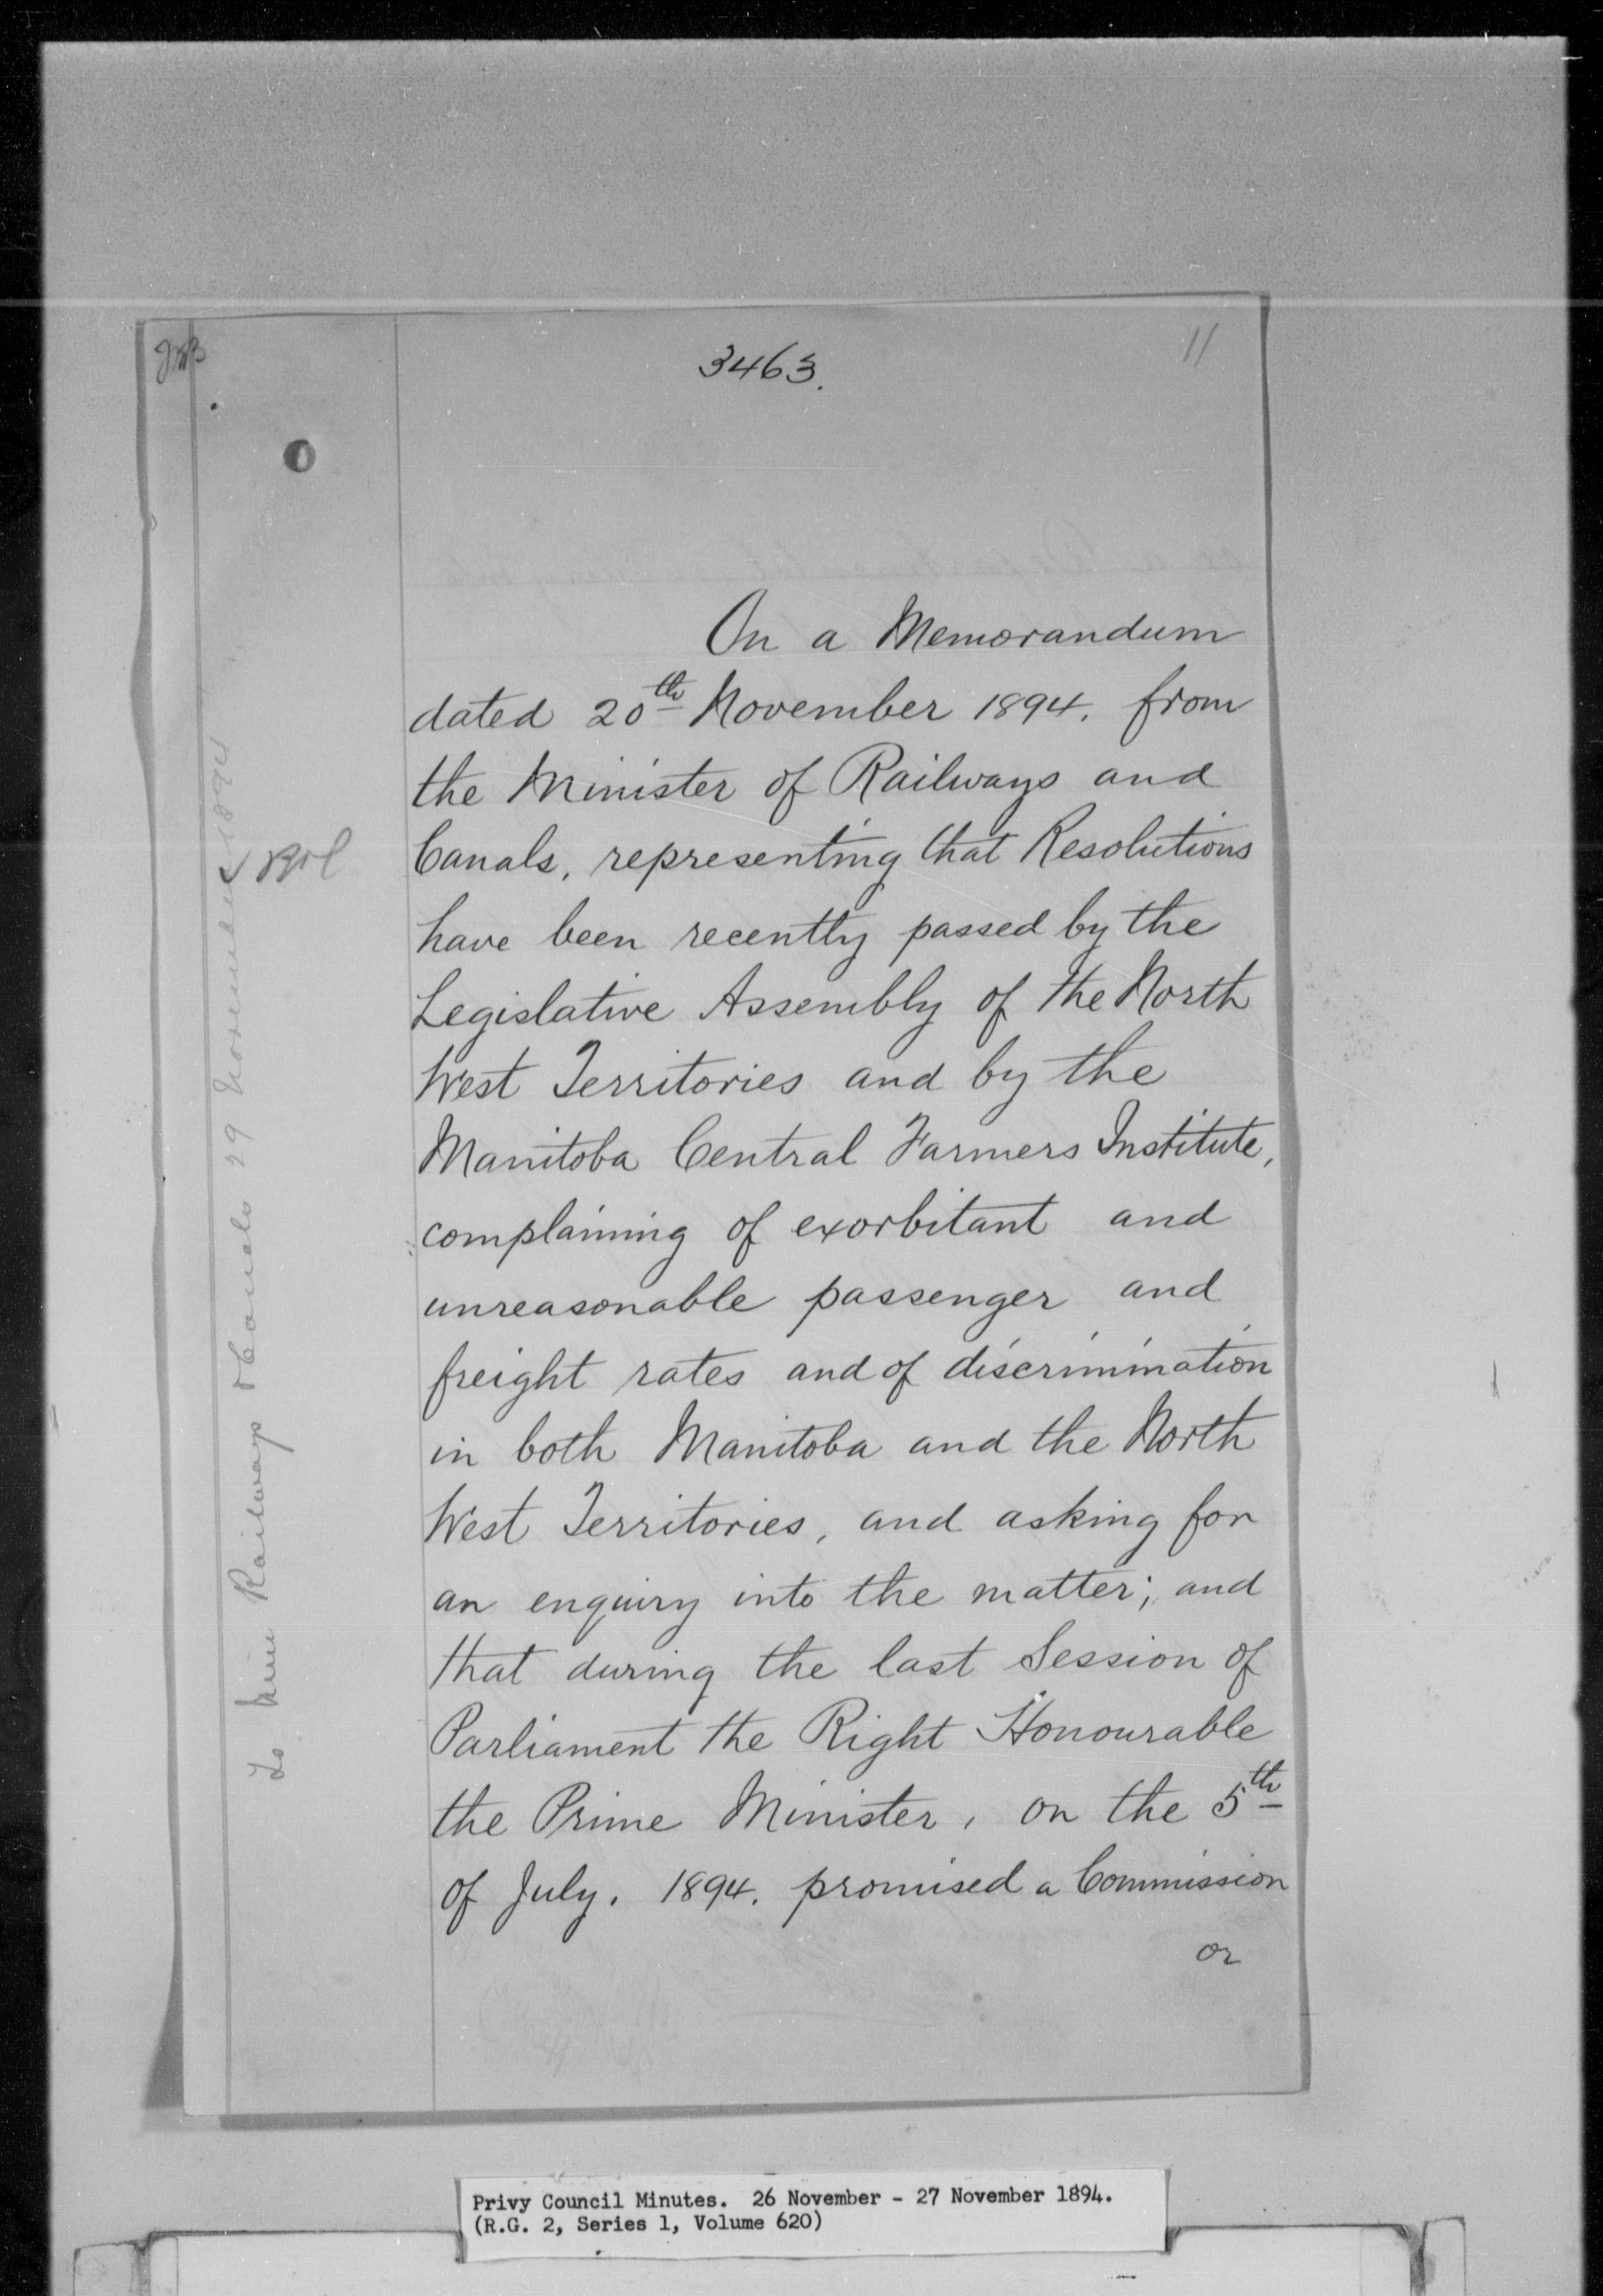 3463.
11
On a Memorandum
dated 20th November 1894. from
the Minister of Railways and
Canals, representing that Resolutions
have been recently passed by the
Legislative Assembly of the North
West Territories and by the
Manitoba Central Farmers Institute,
complaining of exorbitant and
unreasonable passenger and
freight rates and of discrimination
in both Manitoba and the North
West Territories, and asking for
an enquiry into the matter; and
that during the last Session of
Parliament the Right Honourable
the Prime Minister, on the 5th
of July. 1894. promised a Commission
or
To Min Railways & Canals 29 November 1894
Privy Council Minutes. 26 November - 27 November 1894.
(R.G. 2, Series 1, Volume 620)